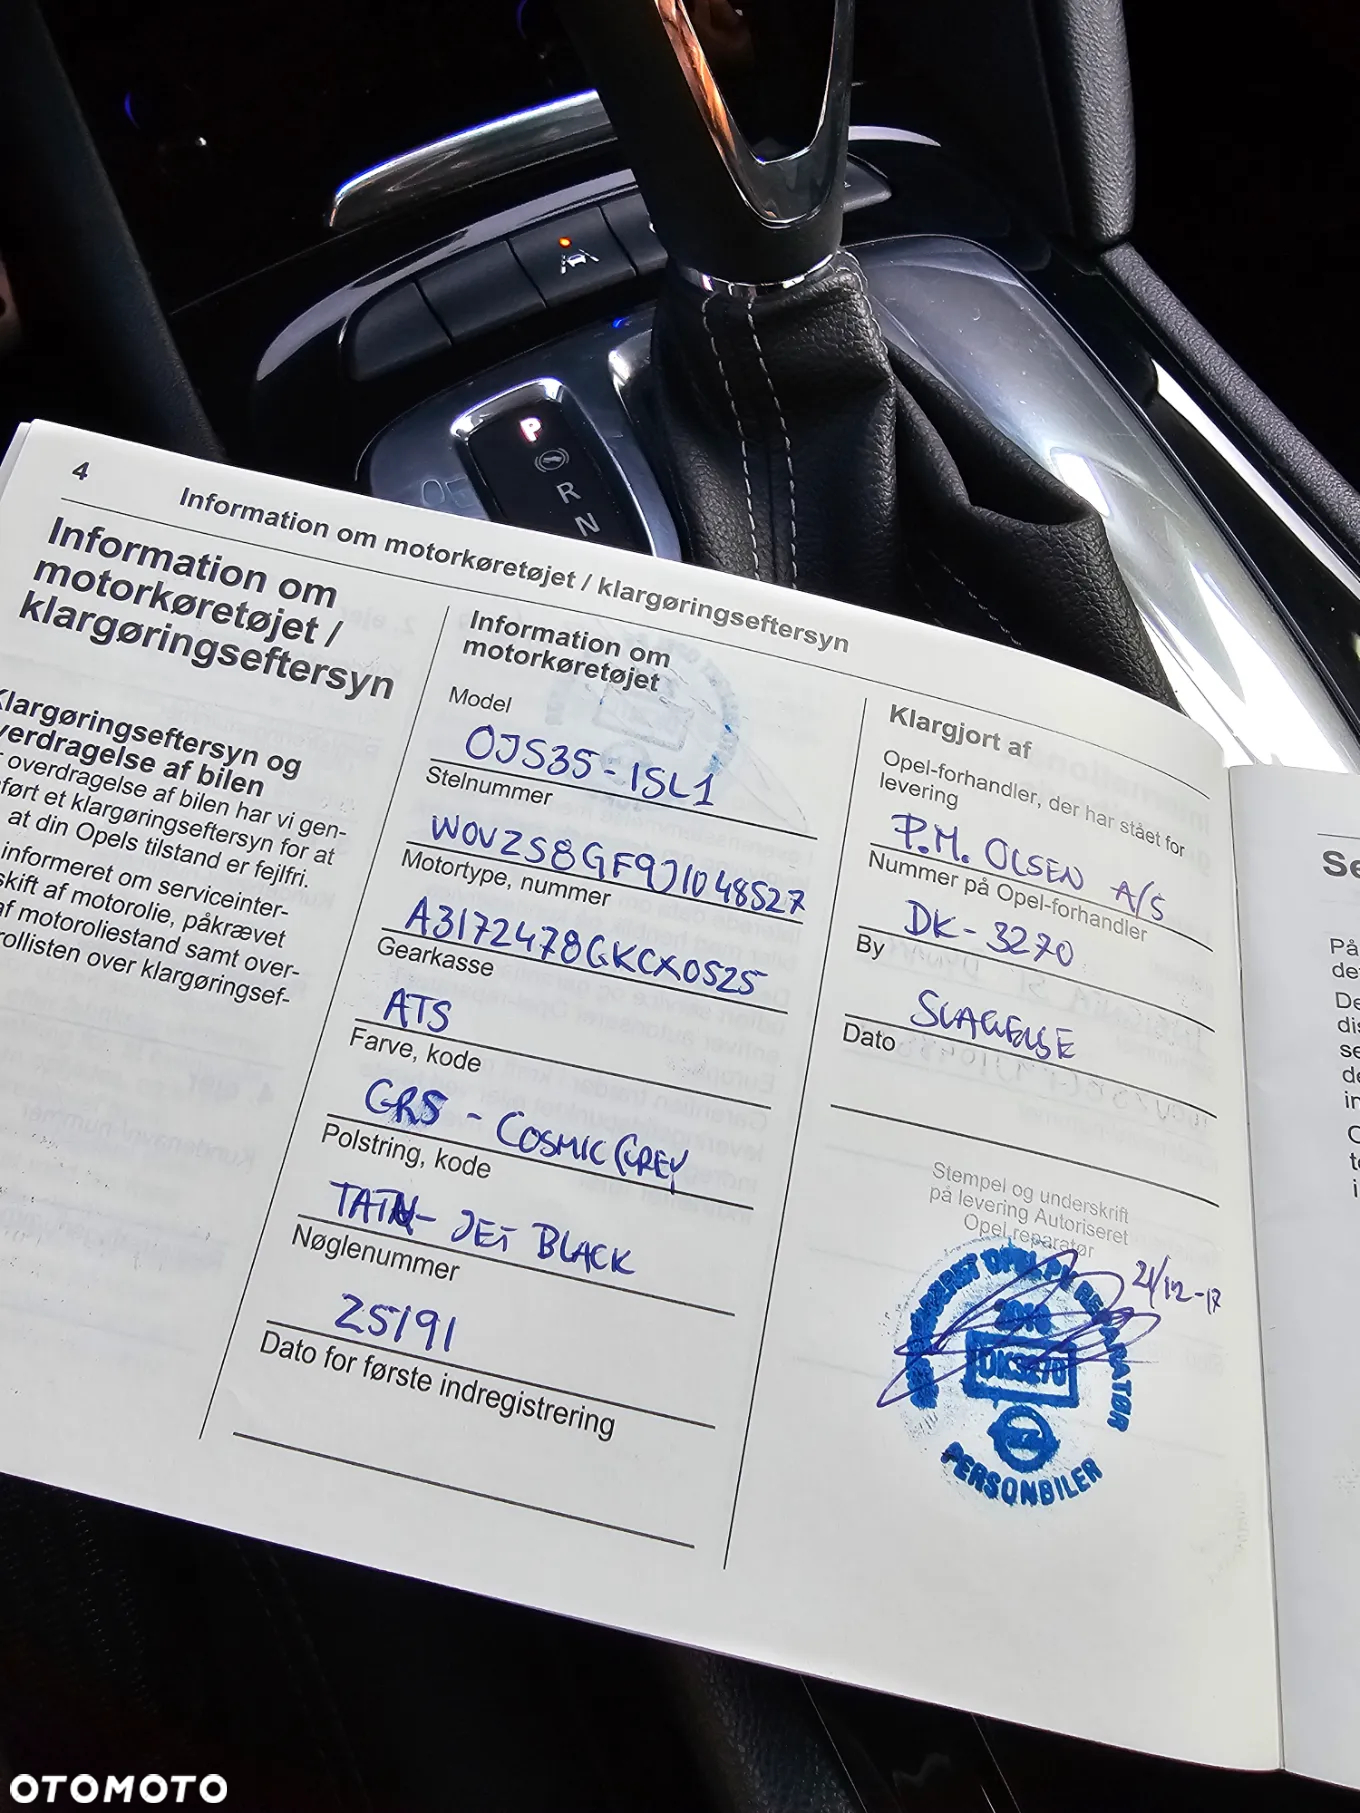 P
R
N
4
Information om motorkøretøjet / klargøringseftersyn
Information om
motorkøretøjet /
klargøringseftersyn
Klargøringseftersyn og
verdragelse af bilen
overdragelse af bilen har vi gen-
ført et klargøringseftersyn for at
at din Opels tilstand er fejlfri.
informeret om serviceinter-
skift af motorolie, påkrævet
af motoroliestand samt over-
rollisten over klargøringsef-
Information om
motorkøretøjet
Model
OJS35-ISL1
Stelnummer
WOVZS8GF9J1048527
Motortype, nummer
A3172478GKCX0525
Gearkasse
ATS
Farve, kode
GR5 - COSMIC GREY
Polstring, kode
TATN- JET BLACK
Nøglenummer
25191
Dato for første indregistrering
Klargjort af
Opel-forhandler, der har stået for
levering
P.M. OLSEN A/S
Nummer på Opel-forhandler
DK-3270
By
SLAGELSE
Dato
Stempel og underskrift
på levering Autoriseret
Opel reparatør
21/12-17
DK3270
PERSONBILER
Se
På
de
De
dis
se
de
in
OTOMOTO